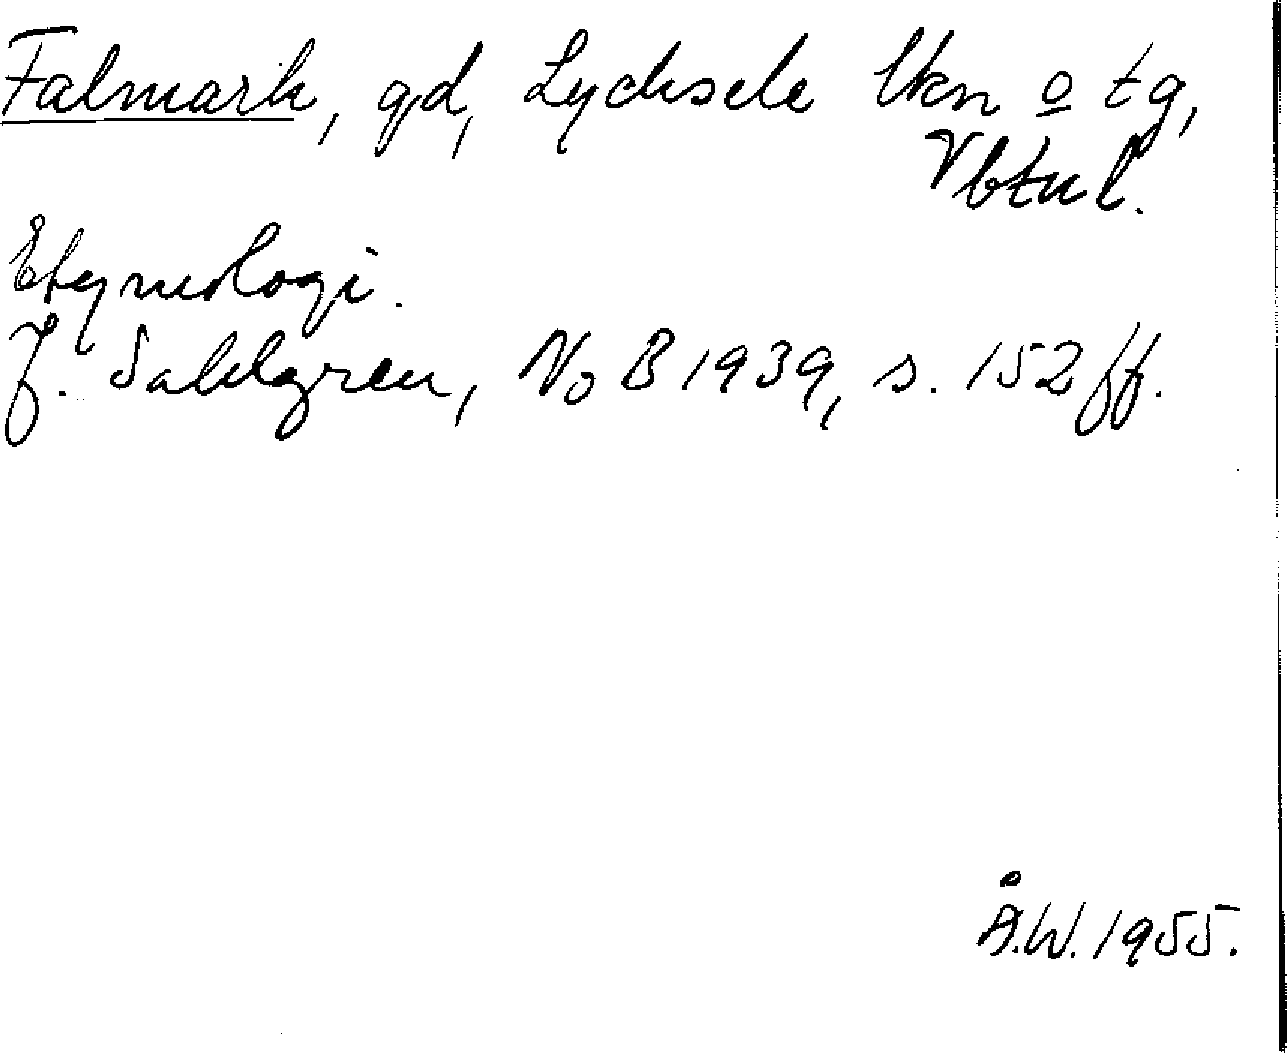 Falmark, gd, Lycksele lkn o tg,
Vbtnl.
Etymologi.
J. Sahlgren, NoB 1939, s. 152 ff.
Å.W. 1955.